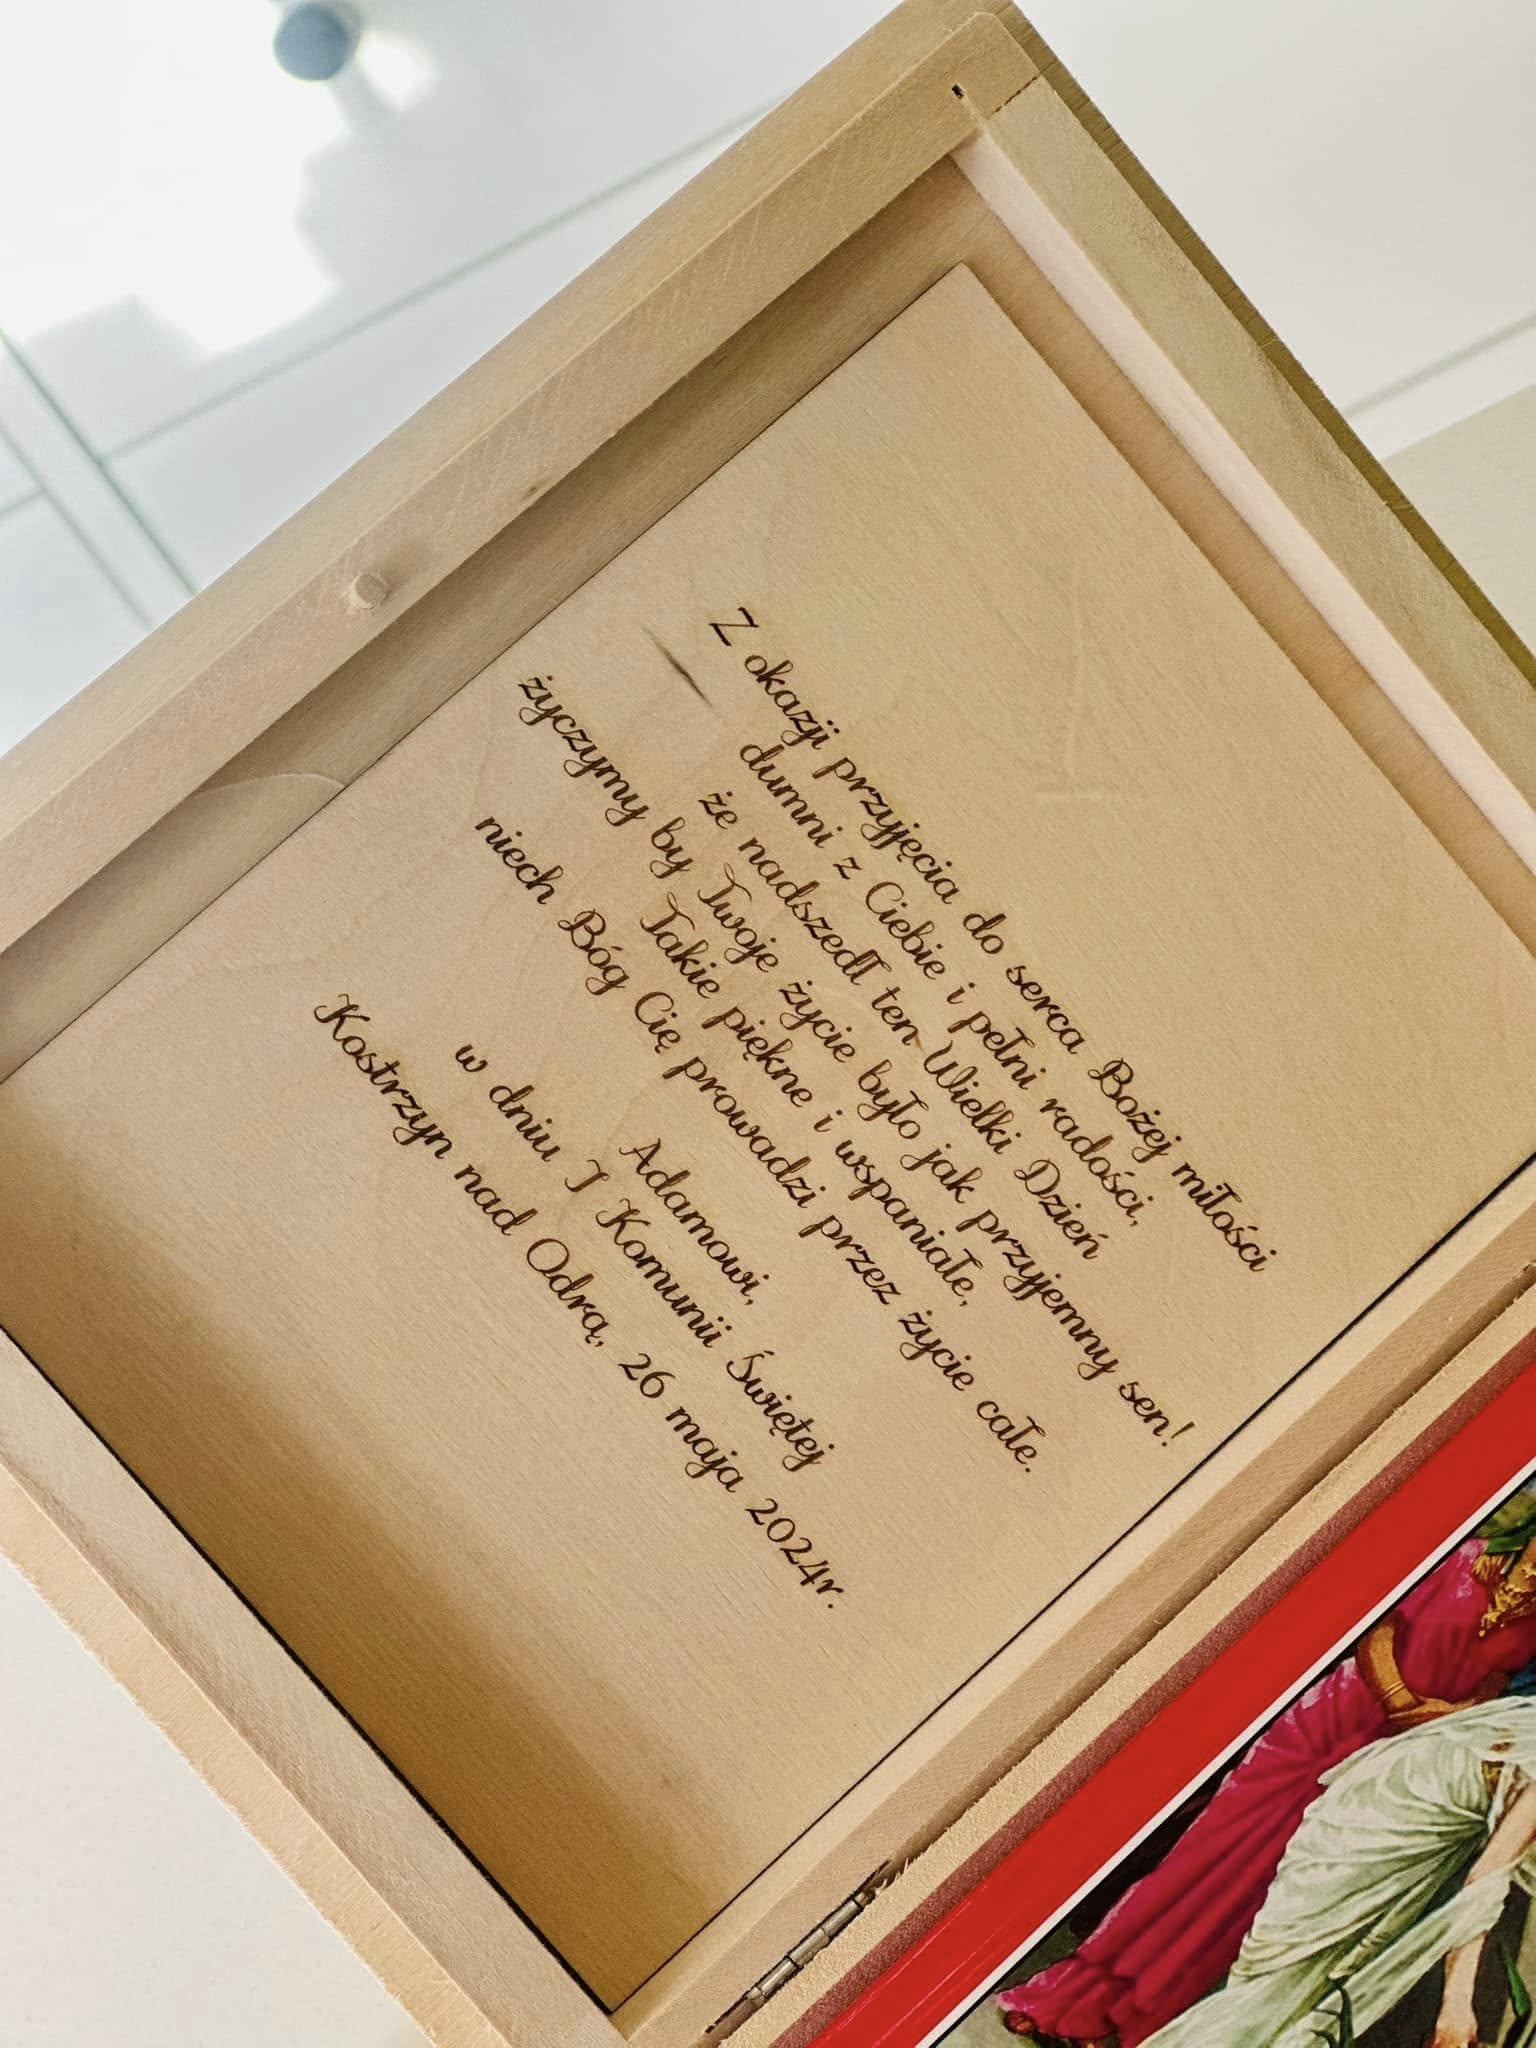 Z okazji przyjęcia do serca Bożej miłości
dumni z Ciebie i pełni radości,
że nadszedł ten Wielki Dzień
życzymy by Twoje życie było jak przyjemny sen!
Takie piękne i wspaniałe,
niech Bóg Cię prowadzi przez życie całe.
Adamowi,
w dniu I Komunii Świętej
Kostrzyn nad Odrą, 26 maja 2024r.